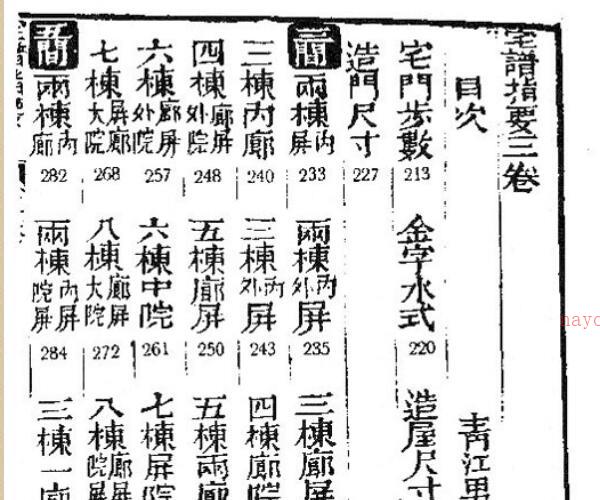 宅譜指要三卷
目次 青江
宅門步數 213 金字水式 220 造屋尺寸
造門尺寸 227
三間 兩棟内屏 233 兩棟内外屏 235 三棟廊屏
三棟内廊 240 三棟内外屏 243 四棟廊院
四棟廊屏外院 248 五棟廊屏 250 五棟兩廊
六棟廊屏外院 257 六棟中院 261 七棟屏院
七棟屏廊大院 268 八棟廊屏大院 272 八棟廊屏院屏
五間 兩棟内廊 282 兩棟内屏院屏 284 三棟一廊